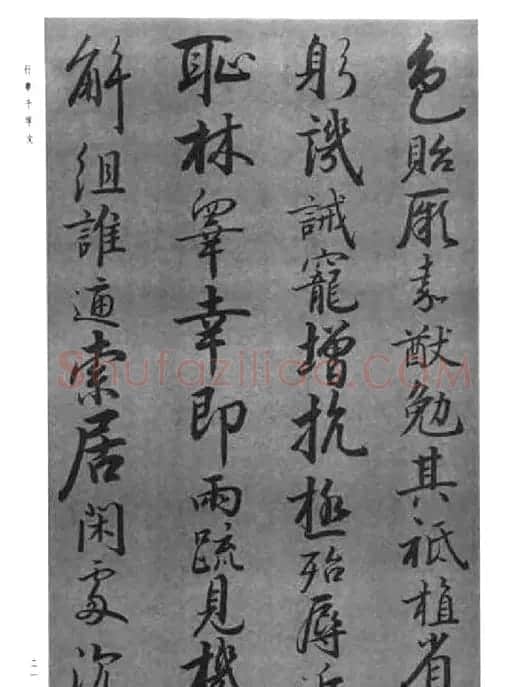 色貽厥嘉猷勉其祗植省
躬譏誡寵增抗極殆辱近
恥林皋幸即兩疏見機
解組誰逼索居閑處沉
行書千字文
二一
Shufaziliao.COM